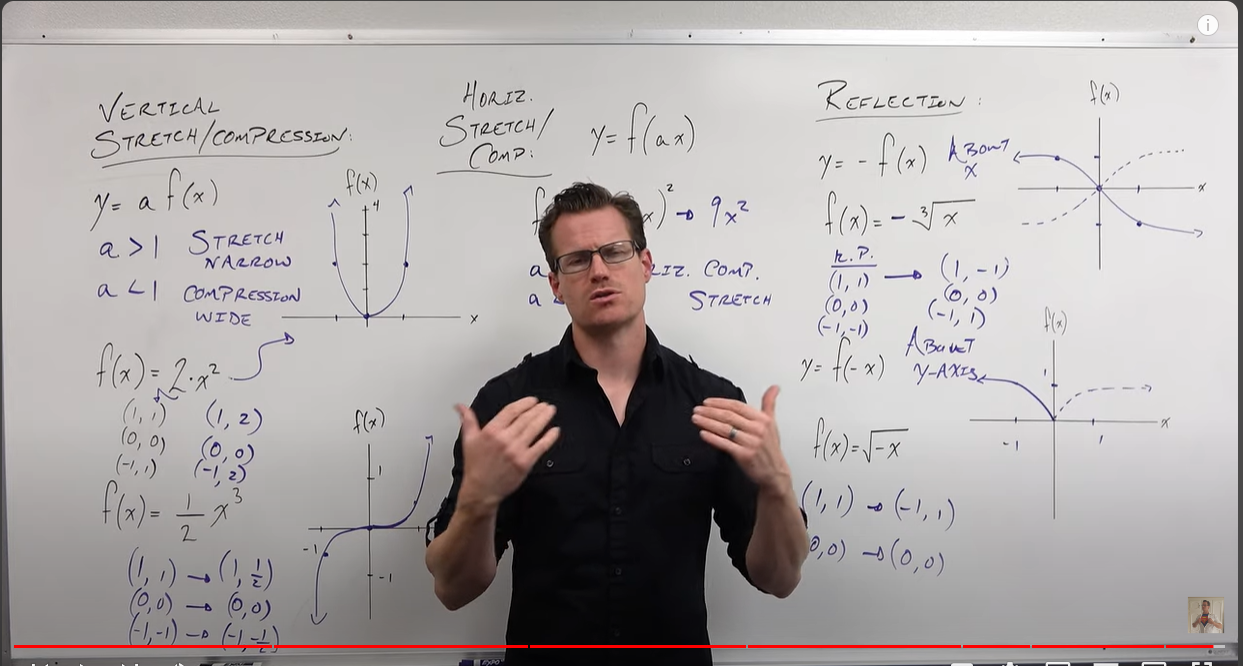 VERTICAL
STRETCH/COMPRESSION:
y = a f(x)
a > 1 STRETCH
NARROW
a < 1 COMPRESSION
WIDE
f(x)
4
x
f(x) = 2·x²
(1, 1) (1, 2)
(0, 0) (0, 0)
(-1, 1) (-1, 2)
f(x) = 1/2 x³
(1, 1) → (1, 1/2)
(0,0) → (0,0)
(-1,-1) → (-1,-1/2)
f(x)
1
-1
-1
HORIZ.
STRETCH/
COMP:
y = f(ax)
f x)² → 9x²
a IZ. COMP.
a < STRETCH
REFLECTION:
y = - f(x) ABOUT
X
f(x) = - ∛x
K.P.
(1, 1) → (1, -1)
(0,0) (0, 0)
(-1,-1) (-1, 1)
y = f(-x) ABOUT
Y-AXIS
f(x) = √-x
(1, 1) → (-1, 1)
0,0) → (0,0)
f(x)
x
f(x)
1
x
-1 1
EXPO